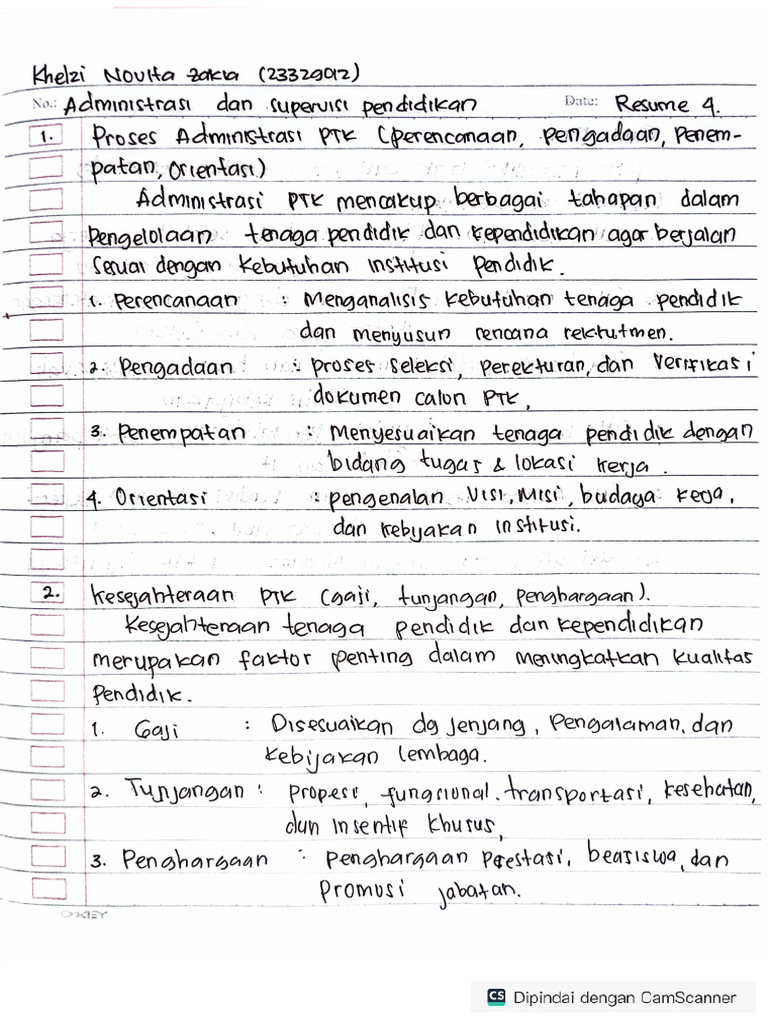 Khelzi Novita Zakia (23329012)
No.: Administrasi dan supervisi pendidikan Date: Resume 4.
1. Proses Administrasi PTK (perencanaan, pengadaan, Penem-
patan, orientasi)
Administrasi PTK mencakup berbagai tahapan dalam
Pengelolaan tenaga pendidik dan kependidikan agar berjalan
sesuai dengan kebutuhan institusi pendidik.
1. Perencanaan : Menganalisis kebutuhan tenaga pendidik
dan menyusun rencana rekrutmen.
2. Pengadaan : proses seleksi, perekturan, dan verifikasi
dokumen calon PTK,
3. Penempatan : Menyesuaikan tenaga pendidik dengan
bidang tugas & lokasi kerja.
4. Orientasi : pengenalan visi, misi, budaya kerja,
dan kebijakan institusi.
2. Kesejahteraan PTK (gaji, tunjangan, penghargaan).
Kesejahteraan tenaga pendidik dan kependidikan
merupakan faktor penting dalam meningkatkan kualitas
pendidik.
1. Gaji : Disesuaikan dg jenjang, Pengalaman, dan
kebijakan lembaga.
2. Tunjangan : propesi, fungsional. transportasi, kesehatan,
dan insentif khusus,
3. Penghargaan : penghargaan prestasi, beasiswa, dan
promosi jabatan.
OKEY
CS Dipindai dengan CamScanner